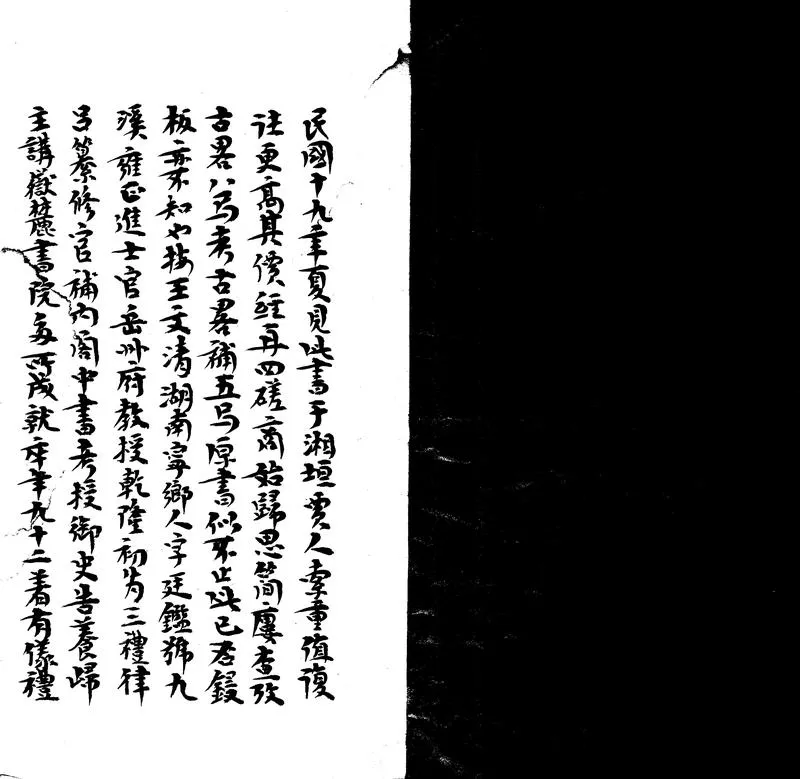 民國十九年夏見此書于湘垣賈人索重值復
往更高其價經再四磋商始歸思簡廔查攷
古畧八馬考古畧補五馬原書似不止此已否鋟
板亦不知也按王文清湖南寧鄉人字廷鑑號九
溪雍正進士官岳州府教授乾隆初為三禮律
呂纂修官補內閣中書考授御史告養歸
主講嶽麓書院多所成就卒年九十二著有儀禮